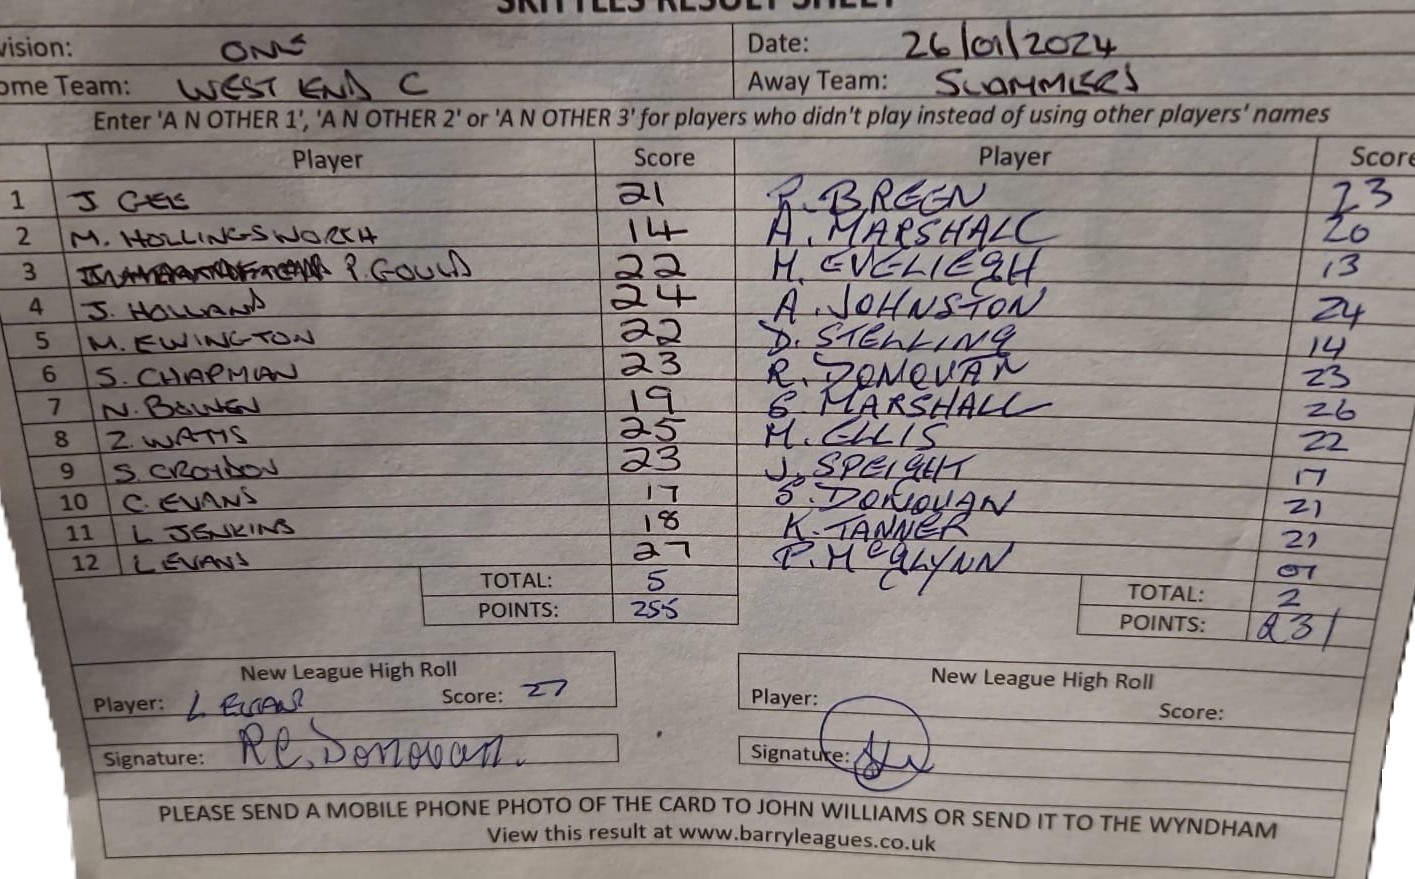 SKITTLES RESULT SHEET
vision: ONE Date: 26/01/2024
ome Team: WEST END C Away Team: SLAMMERS
Enter 'A N OTHER 1', 'A N OTHER 2' or 'A N OTHER 3' for players who didn't play instead of using other players' names
Player Score Player Score
1 J GEE 21 P. BREEN 23
2 M. HOLLINGSWORTH 14 A. MARSHALL 20
3 P. GOULD 22 M. EVELIEGH 13
4 J. HOLLAND 24 A. JOHNSTON 24
5 M. EWINGTON 22 D. STELLING 14
6 S. CHAPMAN 23 R. DONOVAN 23
7 N. BOWEN 19 S. MARSHALL 26
8 Z. WATTS 25 M. ELLIS 22
9 S. CROYDON 23 J. SPEIGHT 17
10 C. EVANS 17 S. DONOVAN 21
11 L JENKINS 18 K. TANNER 21
12 L EVANS 27 P. McGLYNN 07
TOTAL: 5 TOTAL: 2
POINTS: 255 POINTS: 231
New League High Roll New League High Roll
Player: L EVANS Score: 27 Player: Score:
Signature: R.C. Donovan. Signature:
PLEASE SEND A MOBILE PHONE PHOTO OF THE CARD TO JOHN WILLIAMS OR SEND IT TO THE WYNDHAM
View this result at www.barryleagues.co.uk